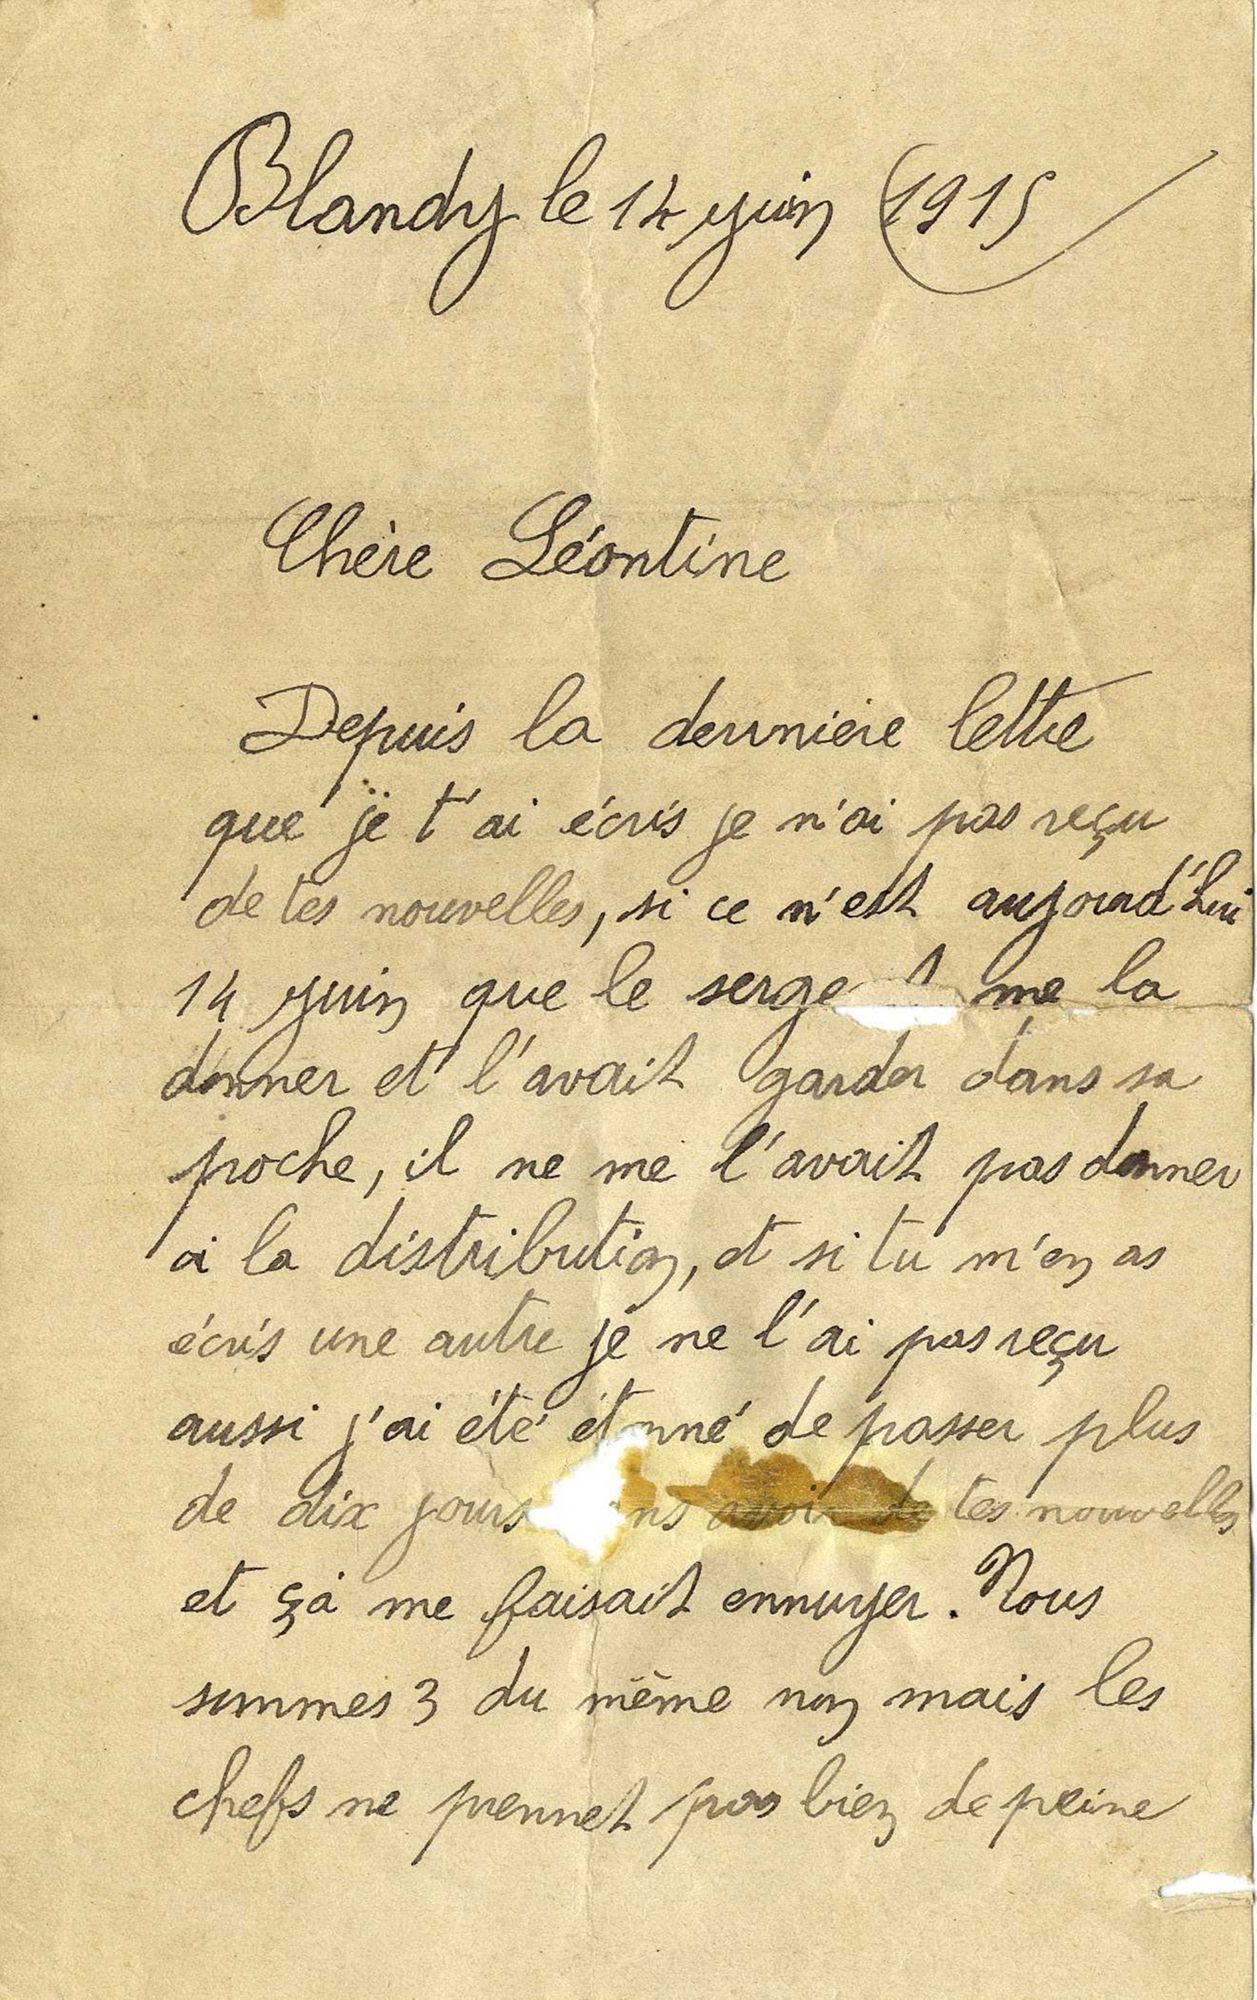 Blandy le 14 juin 1915
Chère Léontine
Depuis la dernnière lettre
que je t'ai écris je n'ai pas reçu
de tes nouvelles, si ce n'est aujourd'hui
14 juin que le serge t me la
donner et l'avait garder dans sa
poche, il ne me l'avait pas donner
à la distribution, et si tu m'en as
écris une autre je ne l'ai pas reçu
aussi j'ai été ét nné de passer plus
de dix jours ns avoir de tes nouvelles
et çà me faisait ennuyer. Nous
sommes 3 du même nom mais les
chefs ne prennet pas bien de peine